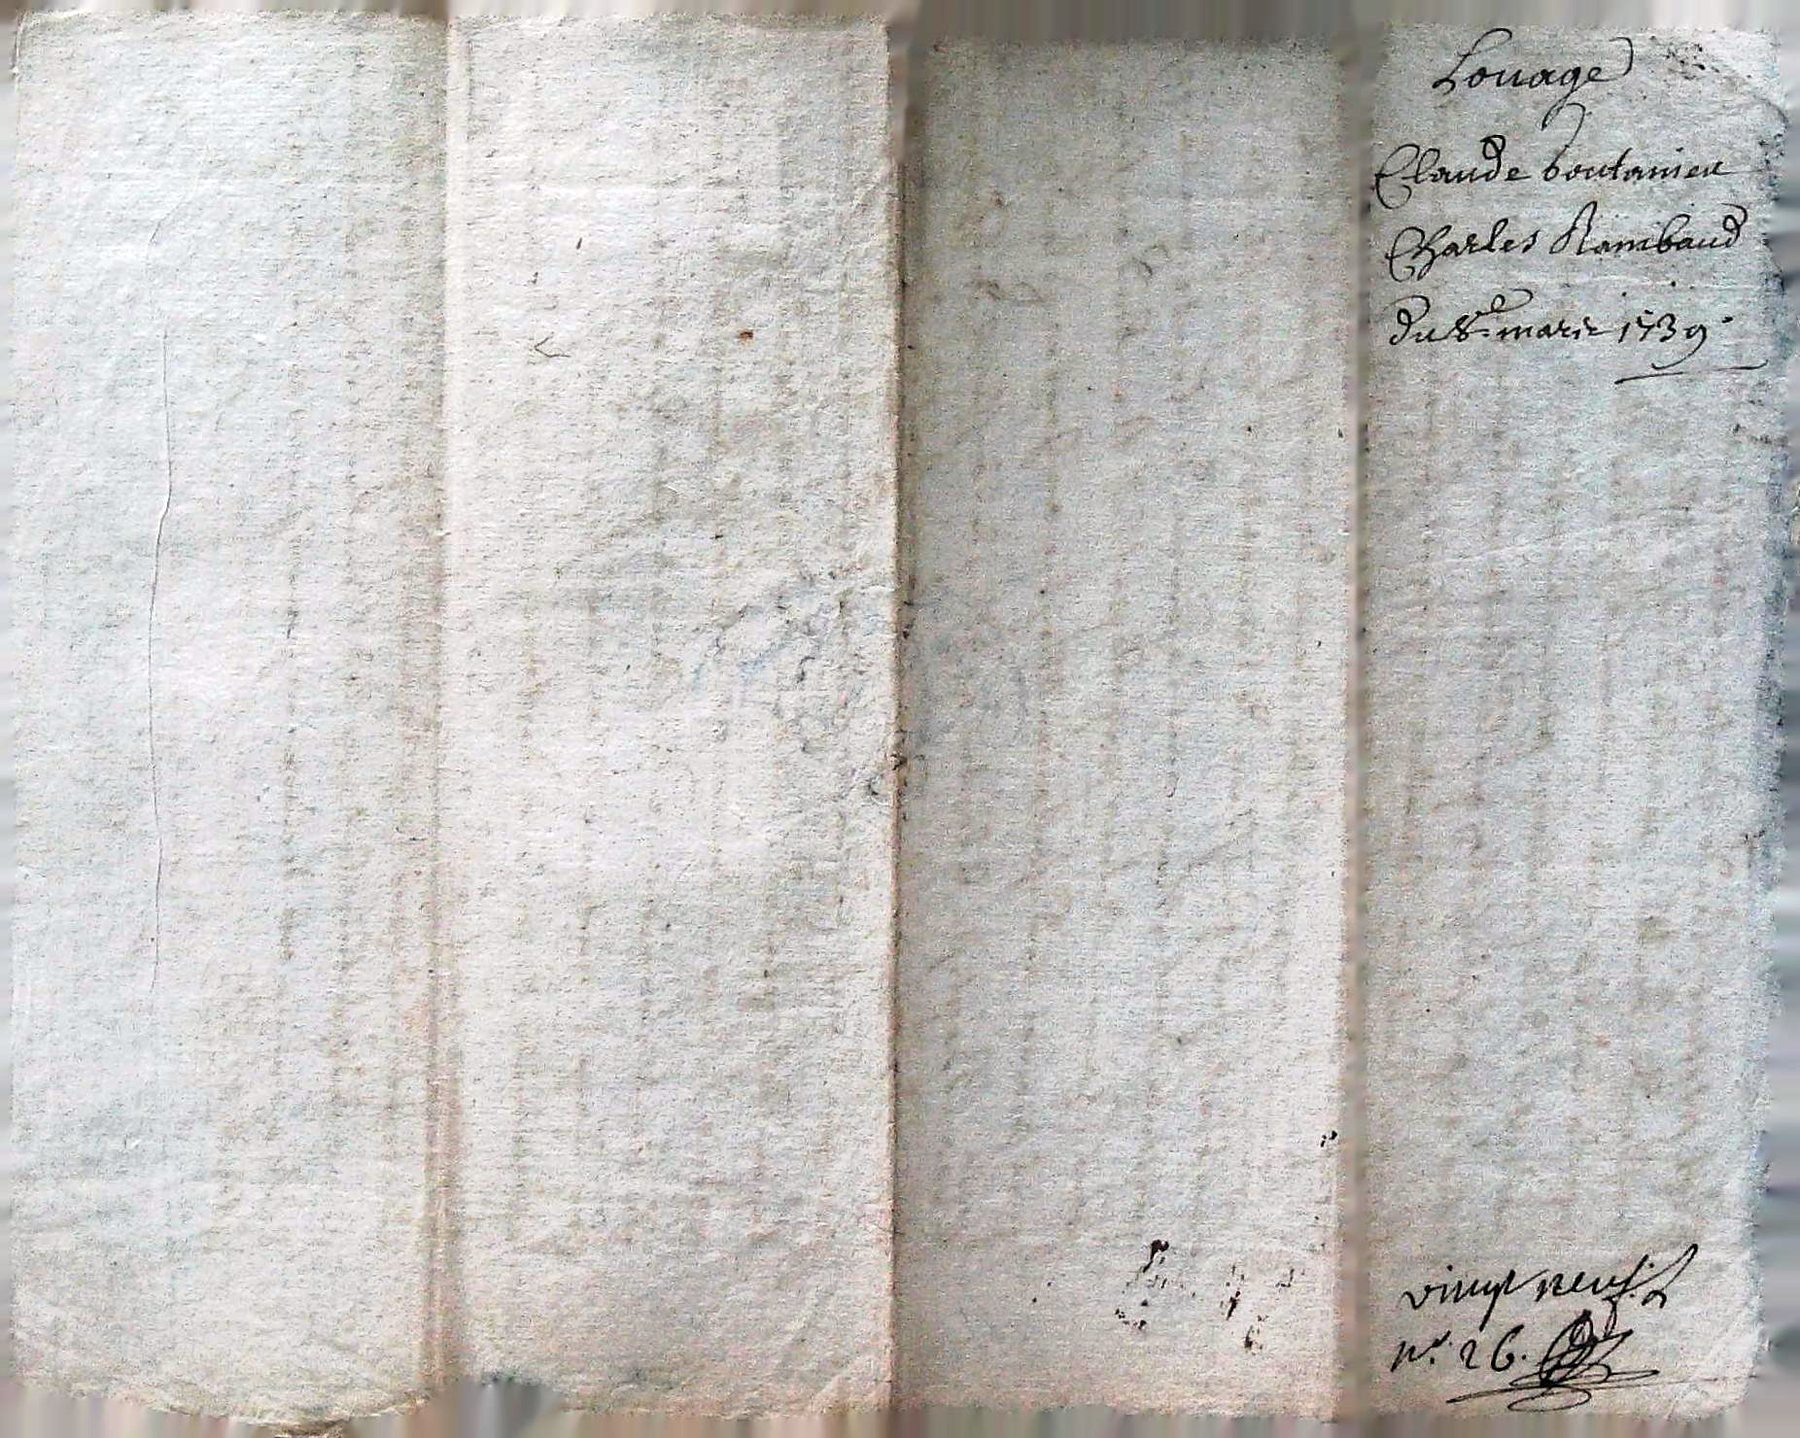 Louage
Claude boutanier
Charles Rambaud
du 8.e mars 1739.
vingt neuf.
n.o 26.